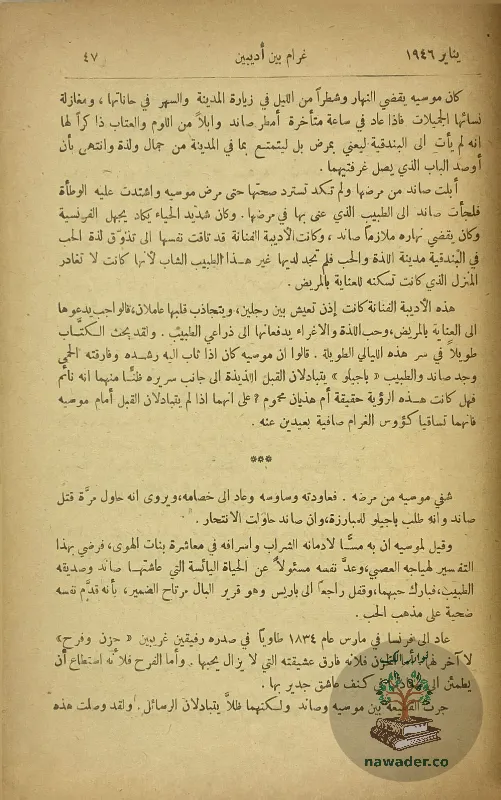 يناير ١٩٤٦
غرام بين أديبين
٤٧
كان موسيه يقضي النهار وشطراً من الليل في زيارة المدينة والسهر في حاناتها ، ومغازلة
نسائها الجميلات فاذا عاد في ساعة متأخرة أمطر صاند وابلاً من اللوم والعتاب ذاكراً لها
انه لم يأت الى البندقية ليعنى بمرض بل ليتمتع بما في المدينة من جمال ولذة وانتهى بأن
أوصد الباب الذي يصل غرفتيهما .
أبلت صاند من مرضها ولم تكد تسترد صحتها حتى مرض موسيه واشتدت عليه الوطأة
فلجأت صاند الى الطبيب الذي عنى بها في مرضها . وكان شديد الحياء يكاد يجهل الفرنسية
وكان يقضي نهاره ملازماً صاند ، وكانت الأديبة الفنانة قد تاقت نفسها الى تذوّق لذة الحب
في البندقية مدينة اللذة والحب فلم تجد لديها غير هـذا الطبيب الشاب لأنها كانت لا تغادر
المنزل الذي كانت تسكنه للعناية بالمريض .
هذه الأديبة الفنانة كانت إذن تعيش بين رجلين، ويتجاذب قلبها عاملان، فالواجب يدعوها
الى العناية بالمريض، وحب اللذة والاغراء يدفعانها الى ذراعي الطبيب . ولقد بحث الكتَّاب
طويلاً في سر هذه الليالي الطويلة . قالوا ان موسيه كان اذا تاب اليه رشده وفارقته الحمى
وجد صاند والطبيب « باجيلو » يتبادلان القبل اللذيذة الى جانب سريره ظنًّا منهما انه نائم
فهل كانت هـذه الرؤية حقيقة أم هذيان محموم ? على انهما اذا لم يتبادلان القبل أمام موسيه
فانهما تساقيا كؤوس الغرام صافية بعيدين عنه .
***
شفي موسيه من مرضه . فعاودته وساوسه وعاد الى خصامه، ويروى انه حاول مرَّة قتل
صاند وانه طلب باجيلو للمبارزة، وان صاند حاولت الانتحار .
وقيل لموسيه ان به مسًّا لادمانه الشراب واسرافه في معاشرة بنات الهوى، فرضي بهذا
التفسير لهياجه العصبي، وعدَّ نفسه مسئولاً عن الحياة اليائسة التي عاشتها صاند وصديقه
الطبيب، فبارك حبهما، وقفل راجعاً الى باريس وهو قرير البال مرتاح الضمير، بأنه قدَّم نفسه
ضحية على مذهب الحب .
عاد الى فرنسا في مارس عام ١٨٣٤ طاوياً في صدره رفيقين غريبين « حزن وفرح »
لا آخر لهما. أما الحزن فلأنه فارق عشيقته التي لا يزال يحبها . وأما الفرح فلأنه استطاع أن
يطمئن الى كنف عاشق جدير بها .
جرت بين موسيه وصاند ولكنهما ظلاَّ يتبادلان الرسائل . ولقد وصلت هذه
نوادر الكتب
nawader.co